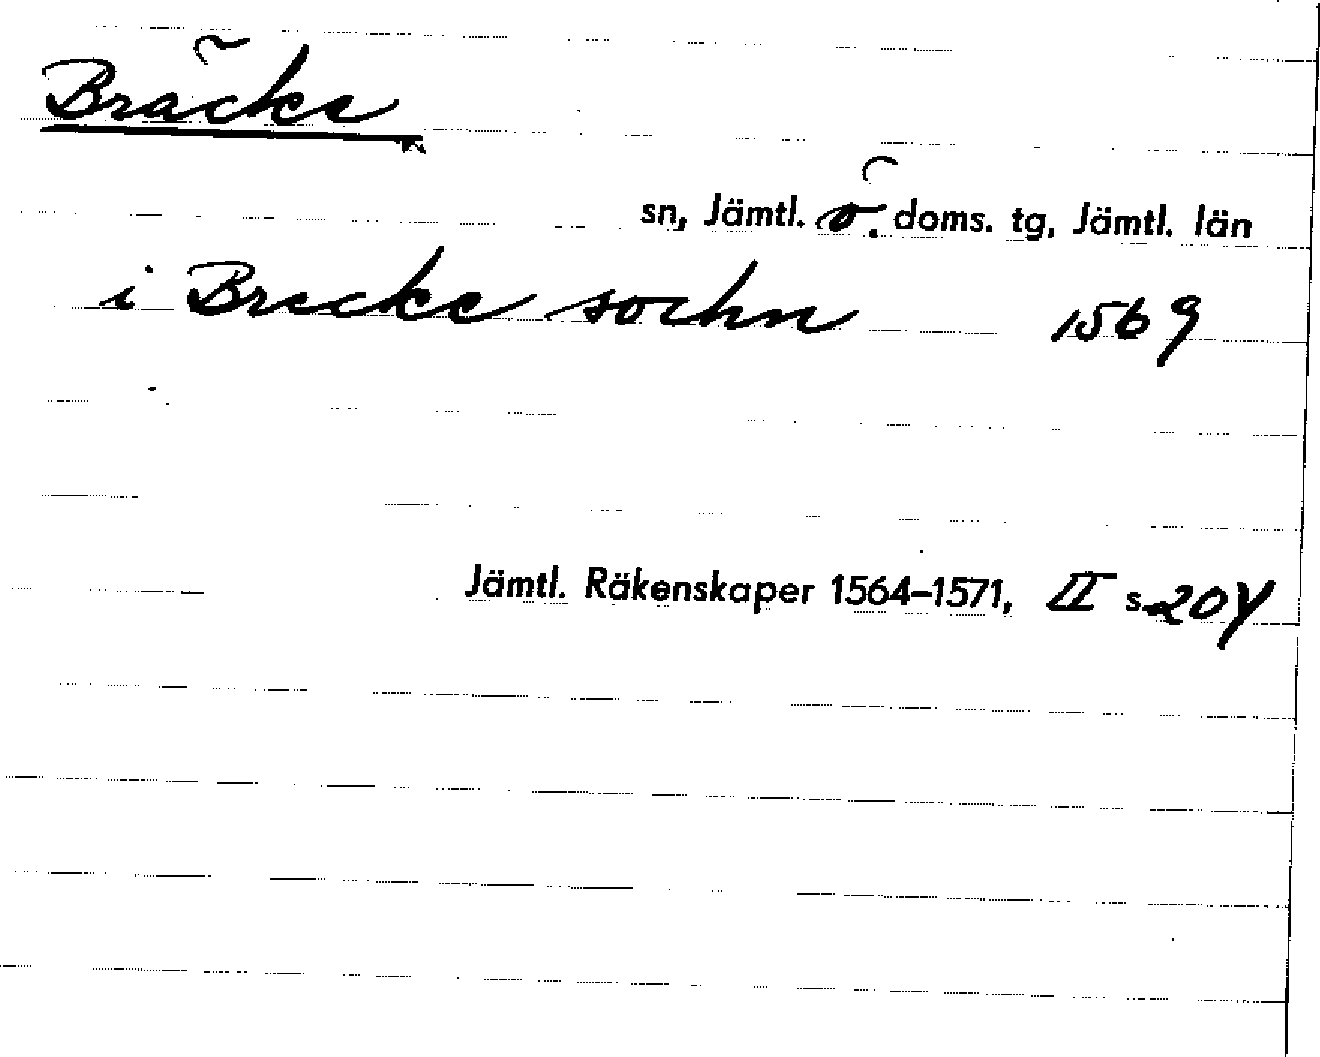 Bräcke
sn, Jämtl. ö. doms. tg, Jämtl. län
i Brecke sochn 1569
Jämtl. Räkenskaper 1564–1571, II s. 204